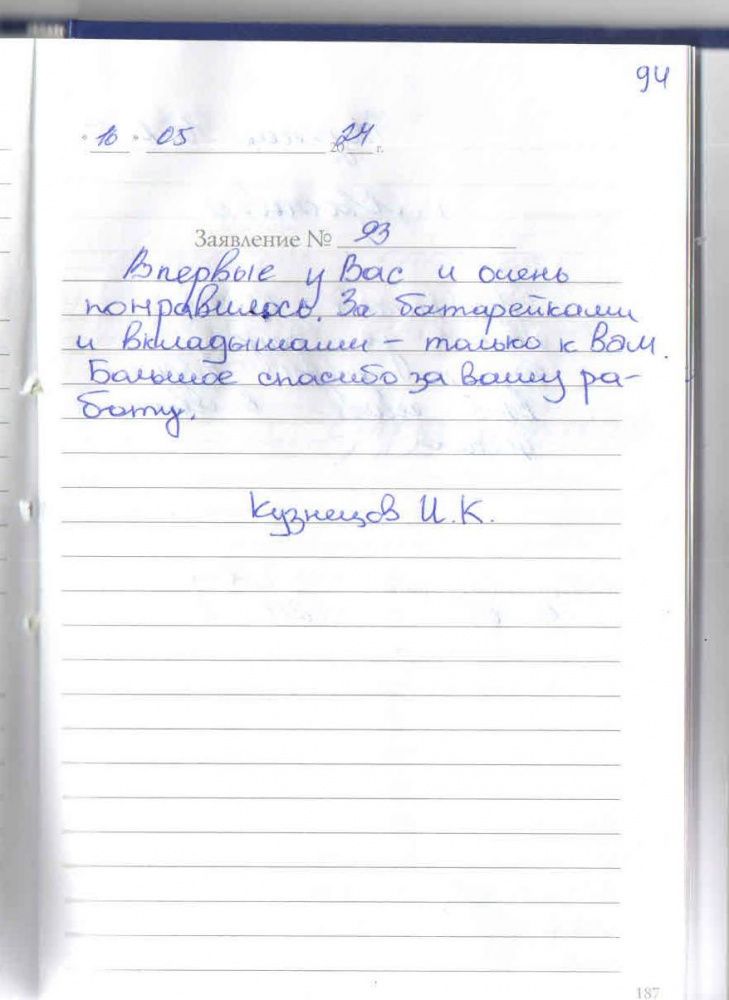 94
"16" 05 2024 г.
Заявление № 93
Впервые у Вас и очень
понравилось. За батарейками
и вкладышами – только к Вам.
Большое спасибо за вашу ра-
боту.
Кузнецов И.К.
187